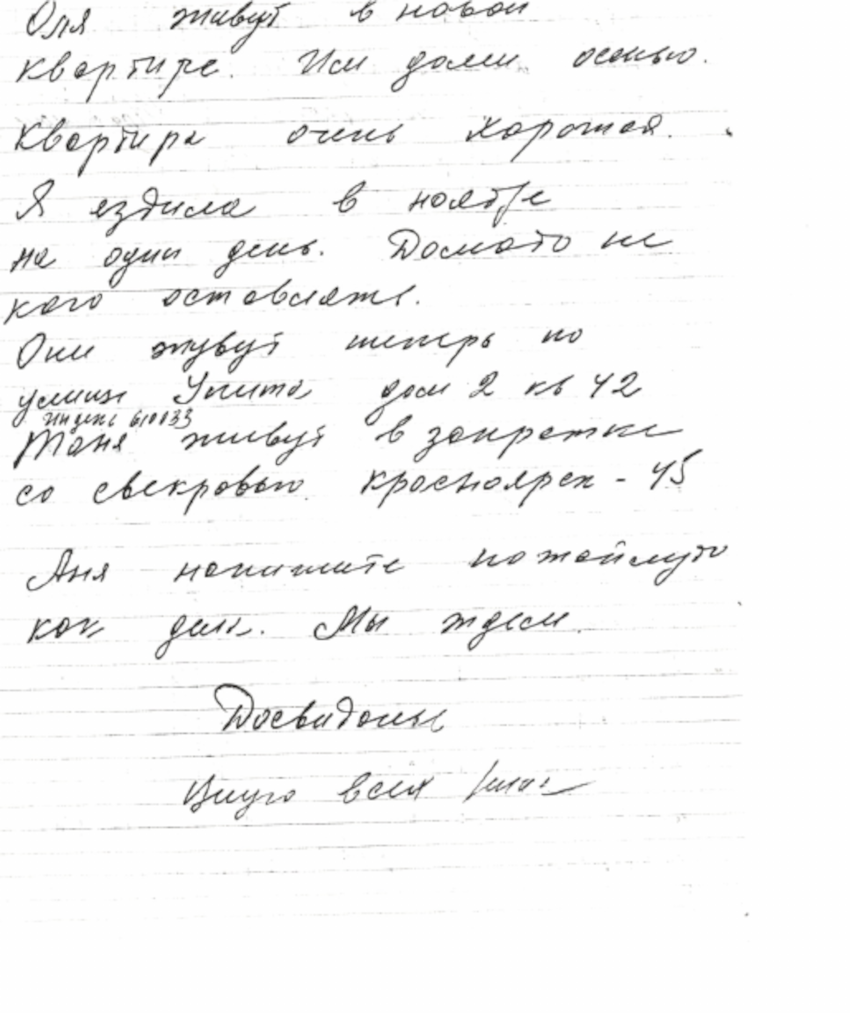 Оля живут в новой
квартире. Им дали осенью.
Квартира очень хорошая.
Я ездила в ноябре
на один день. Дома то не
кого оставлять.
Они живут теперь по
улице Упита дом 2 кв 42
Индекс 610033
Таня живут в запретке
со свекровью. Красноярск - 45
Аня напишите пожайлуто
как дела. Мы ждем.
Досвидание
Целую всех